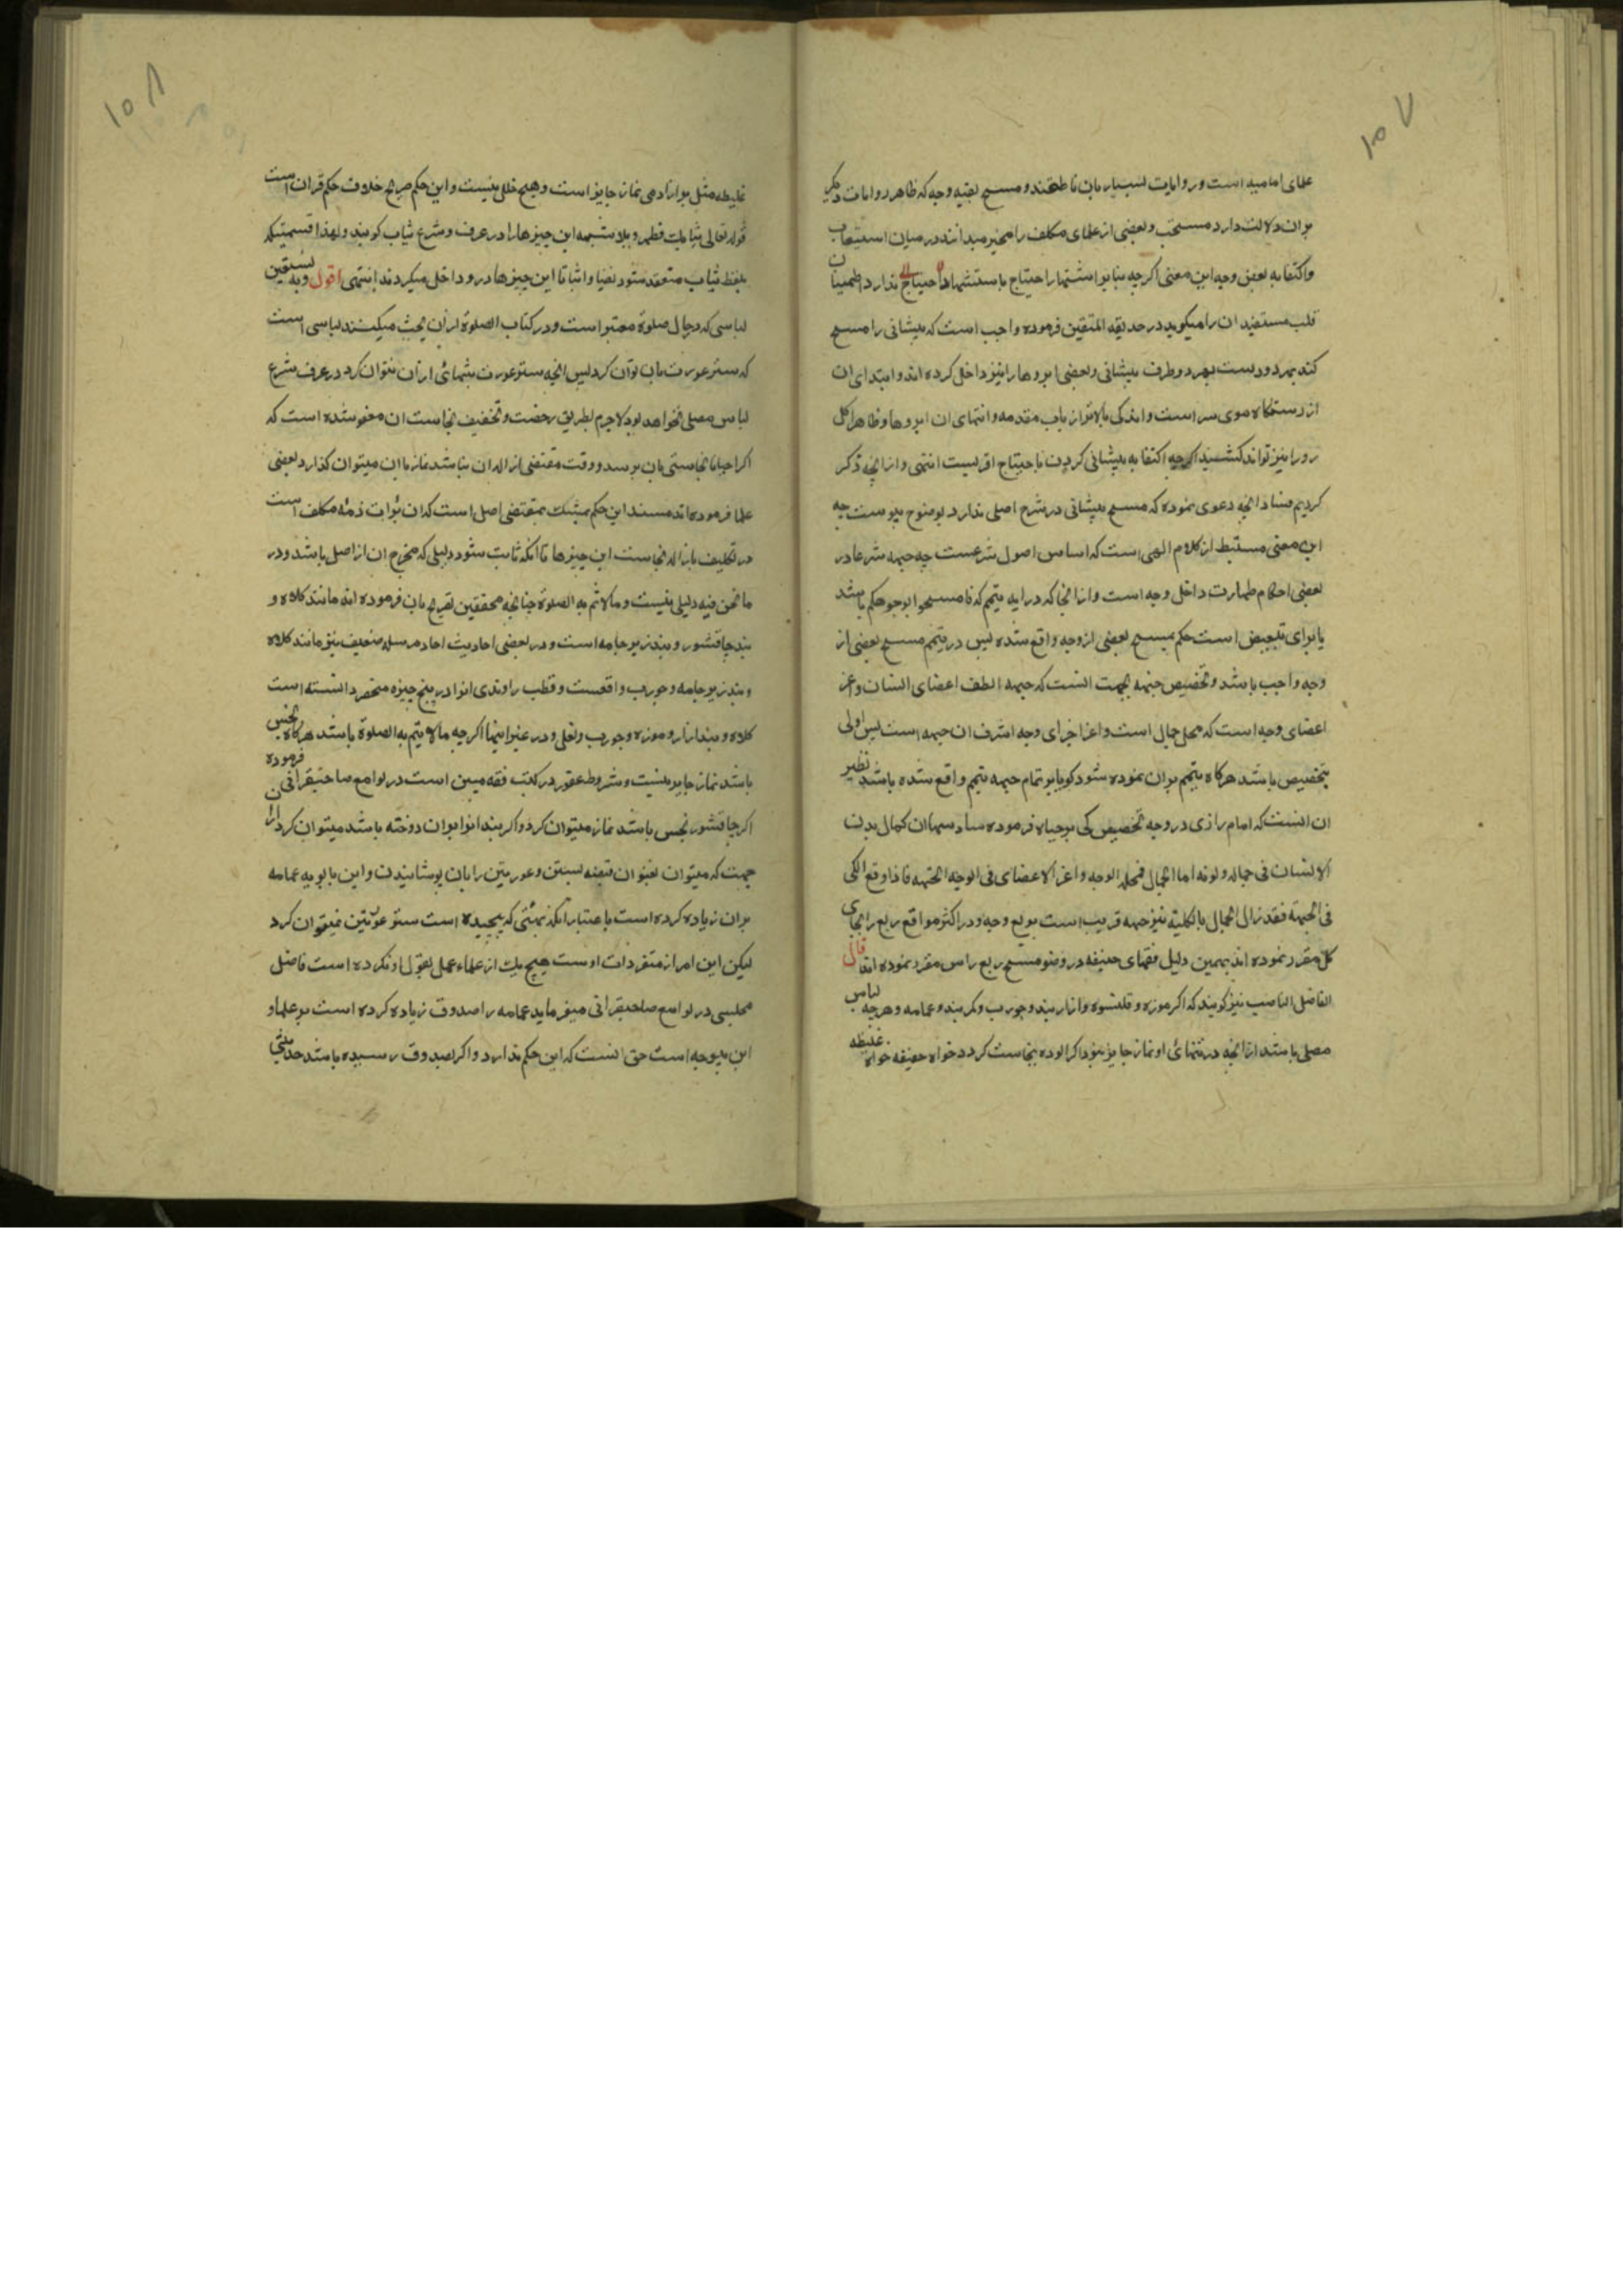 ۱۰۷
علمای امامیه است و روایات بسیار بان ناطقند و مسح بقیه وجه که ظاهر روایات دیگر
بران دلالت دارد مستحب و بعضی از علمای مکلف را مخیر میدانند در میان استیعاب
و اکتفا به بعض وجه این معنی اکرچه بنابر اشتهار احتیاج باستشهاد ندارد اطمینان
قلب مستفیدان را میکوید در حدیقه المتقین فرموده واجب است که پیشانی را مسح
کند بهر دو دست بهر دو طرف پیشانی و بعضی ابروها را نیز داخل کرده اند و ابتدای ان
از رستنکاه موی سر است و اندکی بالاتر از باب مقدمه و انتهای ان ابروها و ظاهرا کل
رو را نیز تواند کشید اکرچه اکتفا به پیشانی کردن باحتیاج اقربست انتهی و از انچه ذکر
کردیم فساد انچه دعوی نموده که مسح پیشانی در شرع اصلی ندارد بوضوح پیوست چه
این معنی مستنبط از کلام الهی است که اساس اصول شرعست چه جبهه شرعا در
بعضی احکام طهارت داخل وجه است و از انجا که در ایه تیمم که فامسحوا بوجوهکم باشد
یا برای تبعیض است حکم بمسح بعضی از وجه واقع شده پس در تیمم مسح بعضی از
وجه واجب باشد و تخصیص جبهه بجهت انست که جبهه الطف اعضای انسان و اعز
اعضای وجه است که محل جمال است و اعز اجزای وجه اشرف ان جبهه است پس اولی
بتخصیص باشد هرکاه تیمم بران نموده شود کویا بر تمام جبهه تیمم واقع شده باشد نظیر
ان انست که امام رازی در وجه تخصیص کی بر جباه فرموده ان کمال بدن
الانسان فی جماله و قوته اما الجمال فمحله الوجه و اعز الاعضای فی الوجه الجبهه فاذا وقع الکی
فی الجبهه فقد زال الجمال بالکلیه نیز جبهه قریب است بربع وجه و در اکثر مواقع ربع را بجای
کل مقرر نموده اند بهمین دلیل فقهای حنیفه در وضو مسح ربع راس مقرر نموده اند قال
الفاضل الناصب نیز کویند که اکر موزه و قلنسوه و ازار بند و جورب و کمربند و عمامه و هرچه لباس
مصلی باشد از انچه در تنهائی او نماز جایز نبود اکر الوده بنجاست کردد خواه خفیفه خواه غلیظه
۱۰۸
غلیظه مثل براز ادمی نماز جایز است و هیچ خللی نیست و این حکم صریح خلاف حکم قران است
قوله تعالی ثیابک فطهر و بلا شبهه این چیزها را در عرف و شرع ثیاب کویند و لهذا قسمیکه
بلفظ ثیاب منعقد شود نفیا و اثباتا این چیزها در و داخل میکردند انتهی اقول و به نستعین
لباسی که در حال صلوة معتبر است و در کتاب الصلوة از ان بحث میکنند لباسی است
که ستر عورت بان توان کرد پس انچه ستر عورت بتنهائی از ان نتوان کرد در عرف شرع
لباس مصلی نخواهد بود لاجرم بطریق رخصت و تخفیف نجاست ان معفو شده است که
اکر احیانا نجاستی بان برسد و وقت مقتضی ازاله ان نباشد نماز با ان میتوان کذارد بعضی
علما فرموده اند مستند این حکم تمسک بمقتضی اصل است که ان برائت ذمه مکلف است
در تکلیف بازاله نجاست این چیزها تا انکه ثابت شود دلیلی که مخرج ان از اصل باشد و در
ما نحن فیه دلیلی نیست و ما لا تتم به الصلوة چنانچه محققین تصریح بان فرموده اند مانند کلاه و
بند چاقشور و بند زیر جامه است و در بعضی احادیث احاد مرسله ضعیف نیز مانند کلاه
و بند زیر جامه و جورب واقعست و قطب راوندی انرا در پنج چیزه منحصر دانسته است
کلاه و بند ازار و موزه و جورب و نعل و در غیر اینها اکرچه ما لا یتم به الصلوة باشد هرکاه نجس
باشد نماز جایز نیست و شروط عفو در کتب فقه مبین است در لوامع صاحبقرانی فرموده
اکر چاقشور نجس باشد نماز میتوان کرد و اکر بند انرا بران دوخته باشد میتوان کرد از ان
جهت که میتوان بعنوان فتیله بستن و عورتین را بان پوشانیدن و ابن بابویه عمامه
بران زیاده کرده است باعتبار انکه بهیئتی که پیچیده است ستر عورتین نمیتوان کرد
لیکن این امر از متفردات اوست هیچ یک از علماء عمل بقول او نکرده است فاضل
مجلسی در لوامع صاحبقرانی میفرماید عمامه را صدوق زیاده کرده است بر علما و
این بیوجه است حق انست که این حکم ندارد و اکر بصدوق رسیده باشد حدیثی